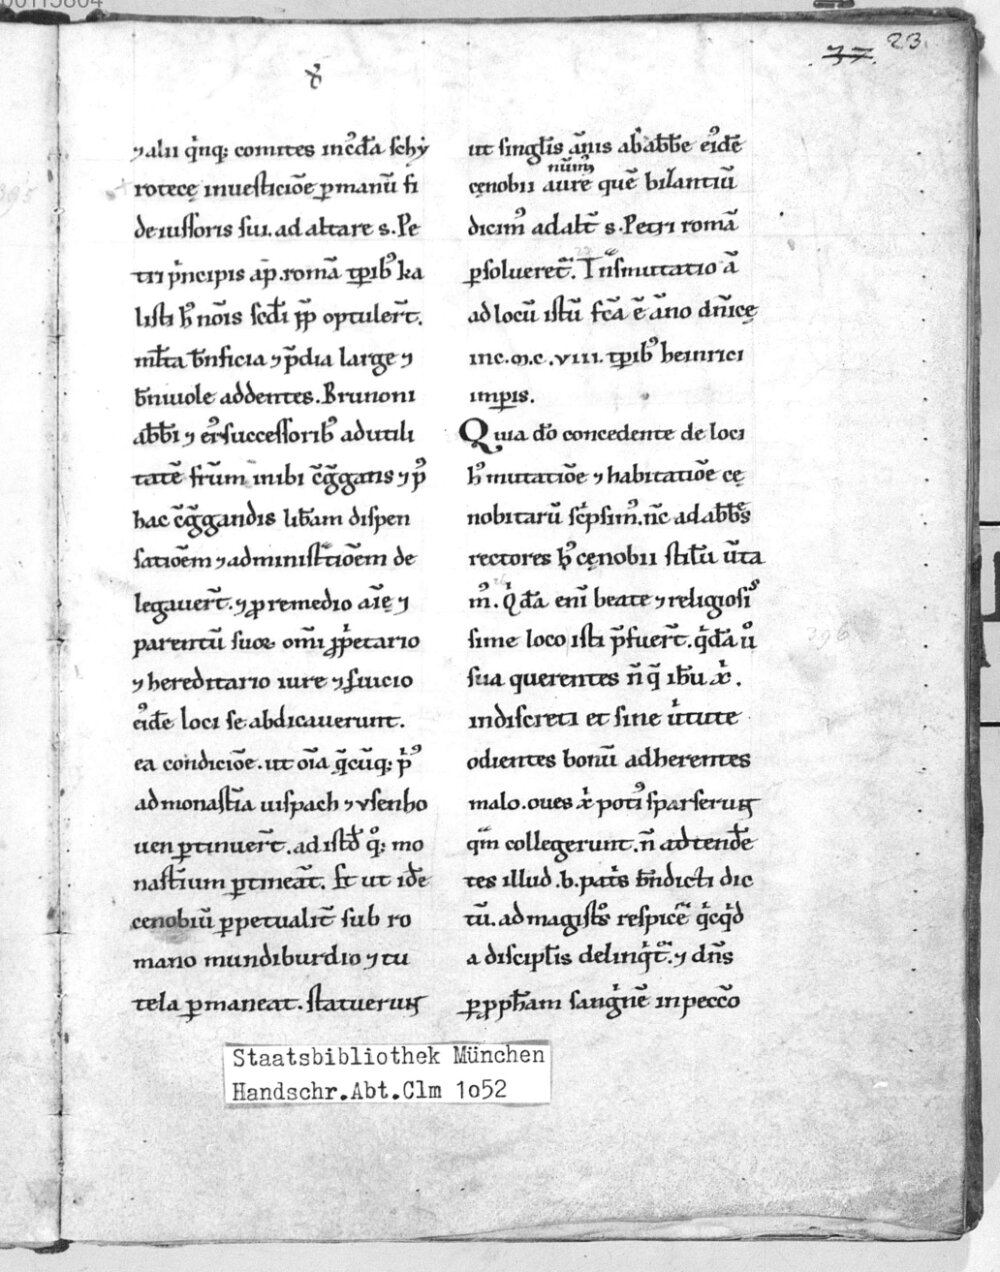 23.
37.
⁊ alii q̾nq; comites incēda schẏ
rotecę inuesticiōe ꝑmanū fi
deiussoris sui. ad altare s. Pe
tri p̾ncipis ap̄. romā tp̄ib᷒ ka
listi h᷒ nōis scd̄i pp̄ optuler̄t.
ml̄ta b̄nficia ⁊ p̄dia large ⁊
b̄niuole addentes. Brunoni
abb̄i ⁊ ei᷒ successorib᷒ ad utili
tatē fr̄um inibi c̄g̃gatis ⁊ p᷒
hac c̄g̃gandis lib̄am dispen
satiōem ⁊ administ̄tiōem de
legauer̄t. ⁊ ꝓ remedio aīę ⁊
parentū suoꝝ om̄i ꝓp̾etario
⁊ hereditario iure ⁊ s̄uicio
ei᷒dē loci se abdicauerunt.
ea condiciōe. ut oīa q̄cūq; p̾᷒
ad monast̄ia uispach ⁊ vsenho
uen ꝑtinuer̄t. ad istd̄ q̊; mo
nast̄ium ꝑtineāt. s̄t ut idē
cenobiū ꝑpetualit̄ sub ro
mano mundiburdio ⁊ tu
tela ꝑmaneat. statuerunt
ut singl̄is ānis ab abb̄e ei᷒dē
cęnobii aure᷒ num̄᷒ quē bilantiū
dicim᷒ ad alt̄ s. Petri romā
ꝑsolueret̄. Tn̄smutatio ā
ad locū istū fc̄a ē āno dn̄icę
inc. m. c. viii. tp̄ib᷒ heinrici
imꝑis.
Quia dō concedente de loci
h᷒ mutatiōe ⁊ habitatiōe cę
nobitarū sc̾psim᷒. nc̄ ad abb̄es
rectores h᷒ cęnobii stilū ūta
m᷒. Q̾dā eni beate ⁊ religiosi᷒
sime loco isti p̄fuer̄t. q̾dā ů
sua querentes n̄ q̄ ih̄u xp̾.
indiscreti et sine u̾tute
odientes bonū adherentes
malo. oues xp̾ poti᷒ sparserunt
qm̄ collegerunt. n̄ adtendē
tes illud. b. pat̾s b̄ndicti dic
tū. ad magist̊s respicē q̾cq̾d
a discipl̄is delinq̾t̄. ⁊ dn̄s
ꝑ ꝓph̄am sang̾nē in pecc̄o
Staatsbibliothek München
Handschr.Abt.Clm 1o52